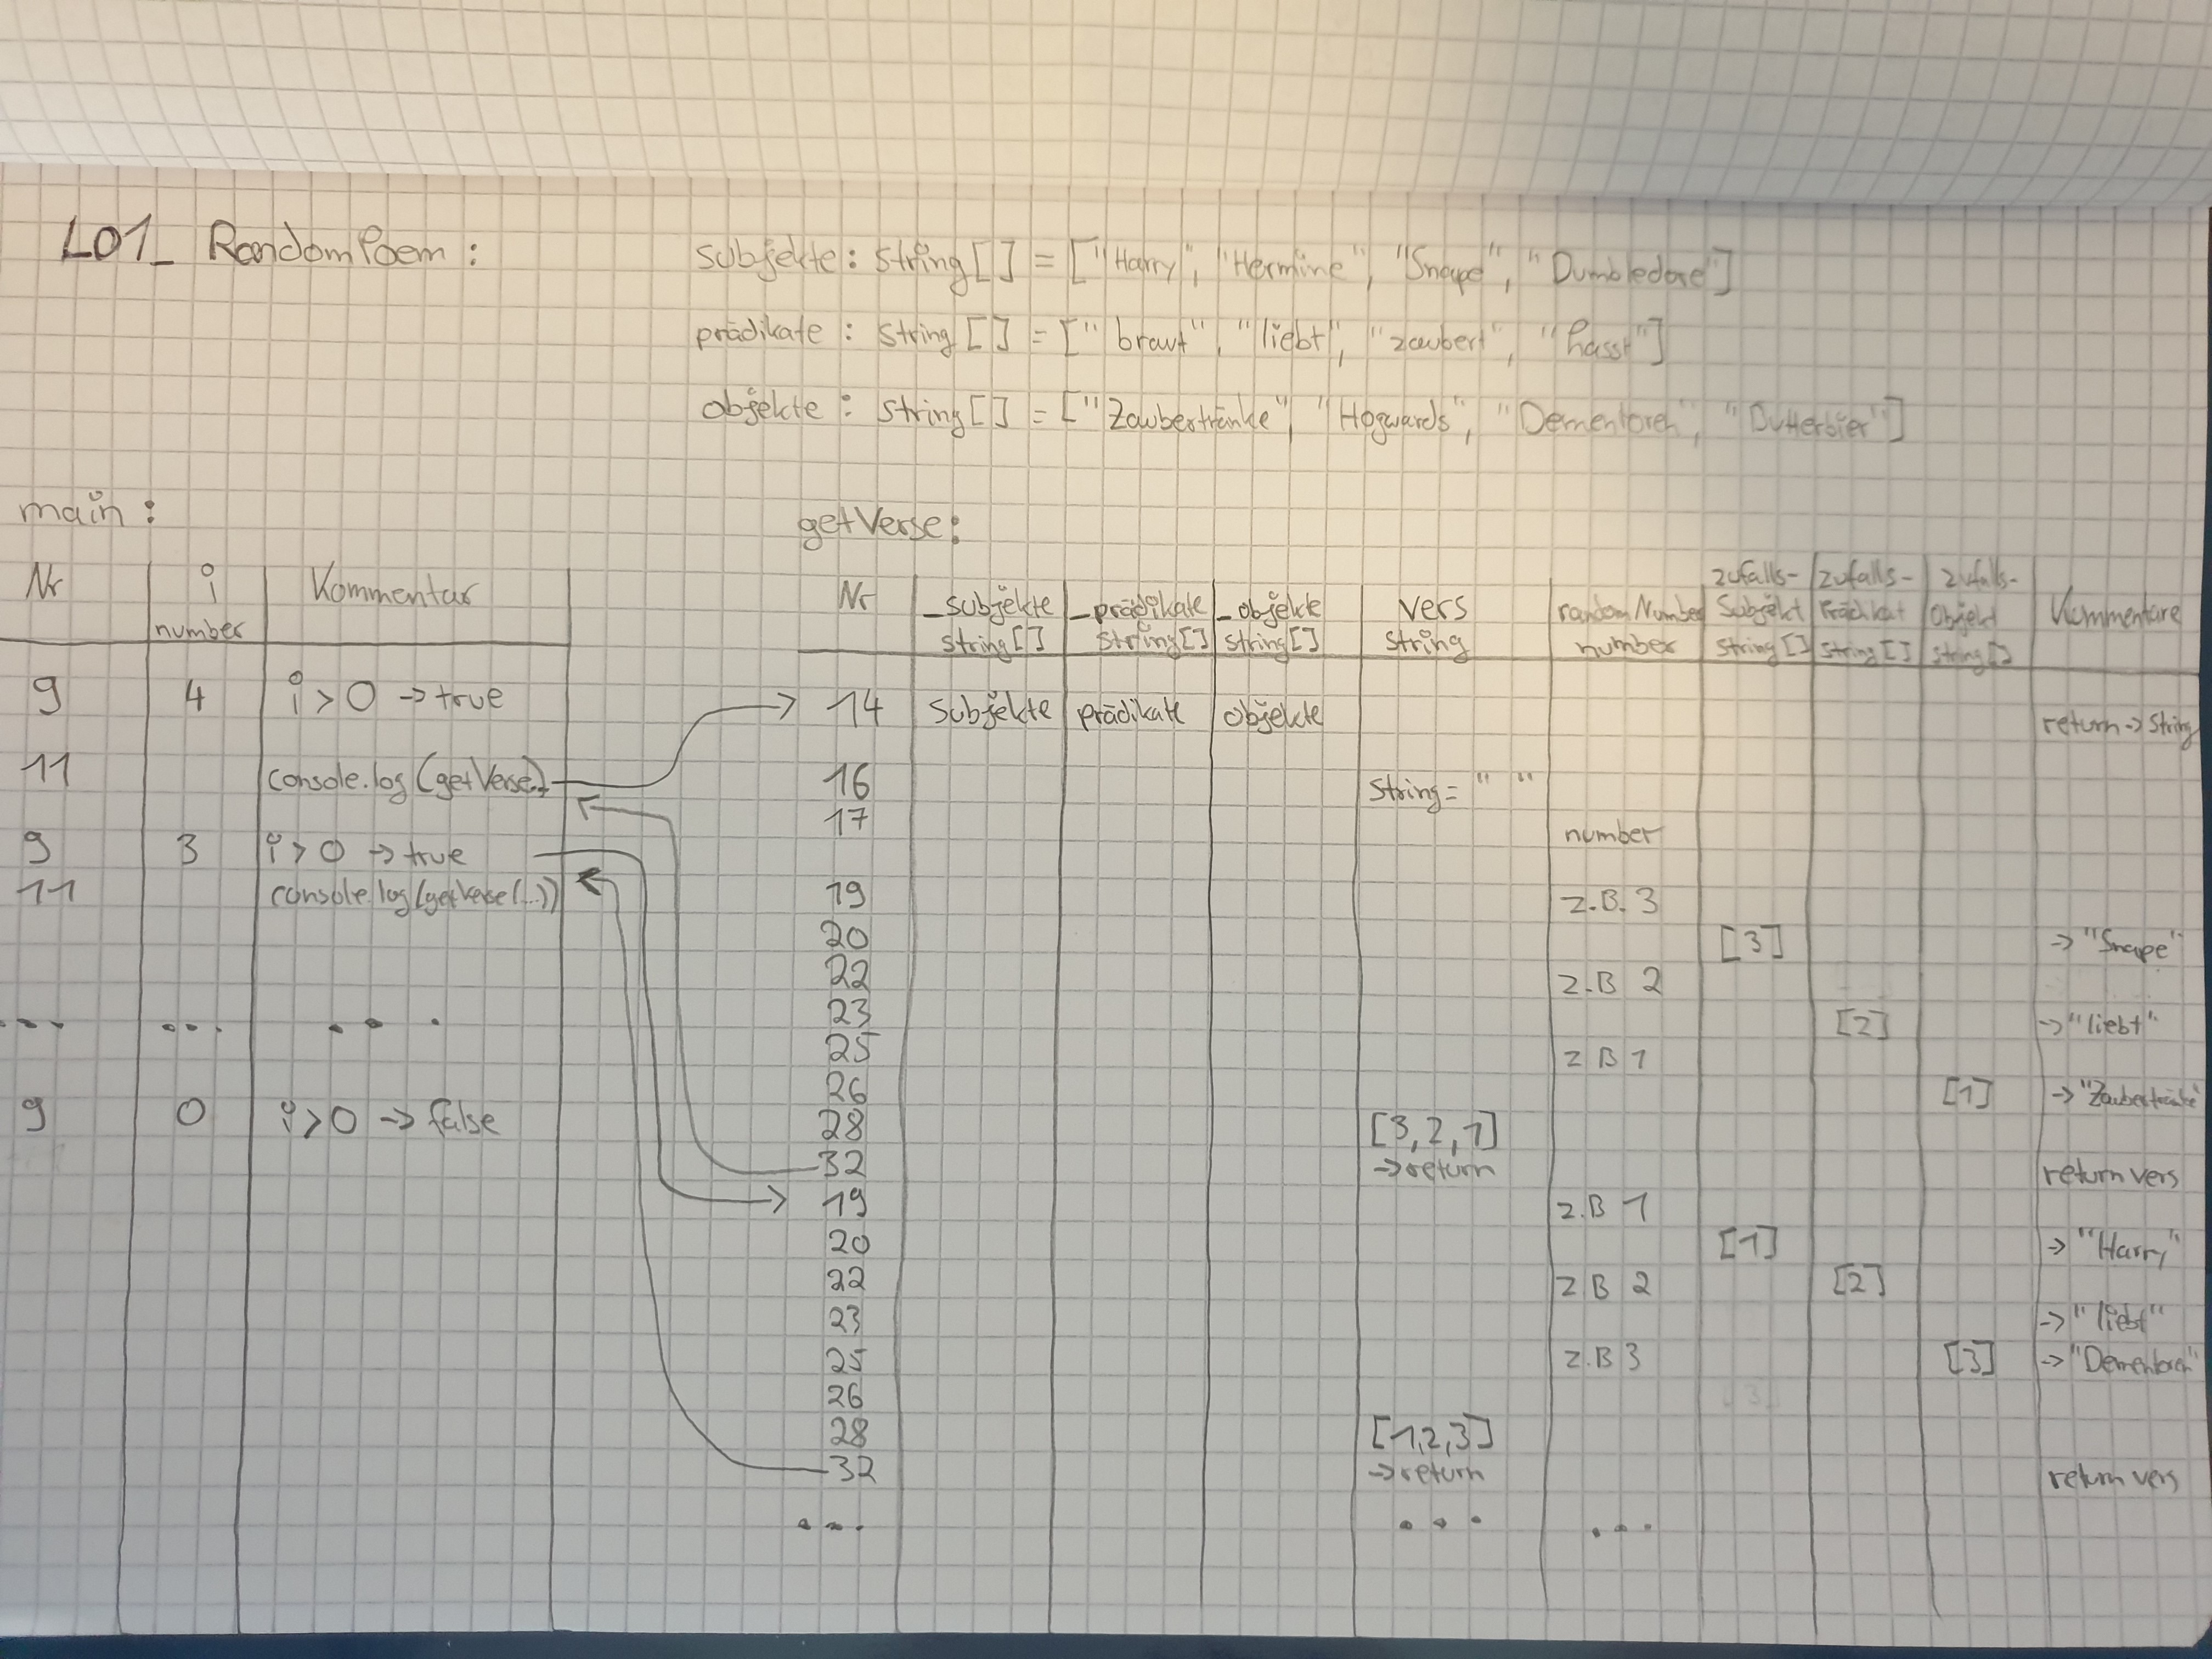 L01_ RandomPoem :
subjekte : string [ ] = ["Harry", "Hermine", "Snape", "Dumbledore"]
prädikate : string [ ] = ["braut", "liebt", "zaubert", "hasst"]
objekte : string [ ] = ["Zaubertränke", "Hogwards", "Dementoren", "Butterbier"]
main :
Nr i number Kommentar
9 4 i > 0 -> true
11 console.log (getVerse..)
9 3 i > 0 -> true
11 console.log (getVerse (...))
... ... ...
9 0 i > 0 -> false
getVerse :
Nr _subjekte string[] _prädikate string[] _objekte string[] vers string randomNumber number zufalls-Subjekt string[] zufalls-Prädikat string[] zufalls-Objekt string[] Kommentare
14 subjekte prädikate objekte return -> string
16 string = " "
17 number
19 z.B. 3
20 [3] -> "Snape"
22 z.B 2
23 [2] -> "liebt"
25 z B 1
26 [1] -> "Zaubertränke"
28 [3, 2, 1]
32 -> return return vers
19 z.B 1
20 [1] -> "Harry"
22 z B 2 [2]
23 -> "liebt"
z.B 3 [3] -> "Dementoren"
26
28 [1,2,3]
32 -> return return vers
... ... ...